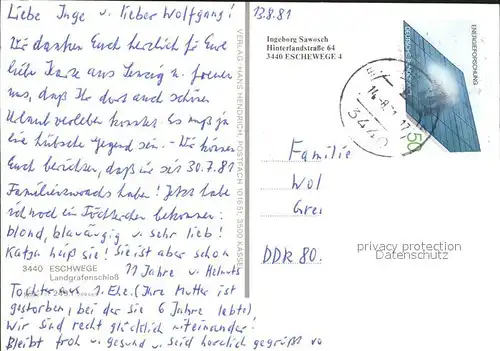 Liebe Inge u. lieber Wolfgang!
Wir danken Euch herzlich für Eure
liebe Karte aus u. freuen
uns, daß Ihr dort auch schönen
Urlaub verleben konntet. Es muß ja
eine hübsche Gegend sein. - Wir können
Euch berichten, daß wir seit 30.7.81
Familienzuwachs haben! Jetzt habe
ich noch ein Töchterchen bekommen:
blond, blauäugig u. sehr lieb!
Katja heißt sie! Sie ist aber schon
11 Jahre u. Helmuts
Tochter aus 1. Ehe. (Ihre Mutter ist
gestorben, bei der sie 6 Jahre lebte).
Wir sind recht glücklich miteinander!
Bleibt froh u. gesund u. seid herzlich gegrüßt vo
3440 ESCHWEGE
Landgrafenschloß
VERLAG: HANS HENDRICH, POSTFACH 101651, 3500 KASSEL
13.8.81
Ingeborg Sawosch
Hinterlandstraße 64
3440 ESCHWEGE 4
DEUTSCHE BUNDESPOST
ENERGIEFORSCHUNG
50
3440
Familie
Wol
Grei
DDR 80.
privacy protection
Datenschutz